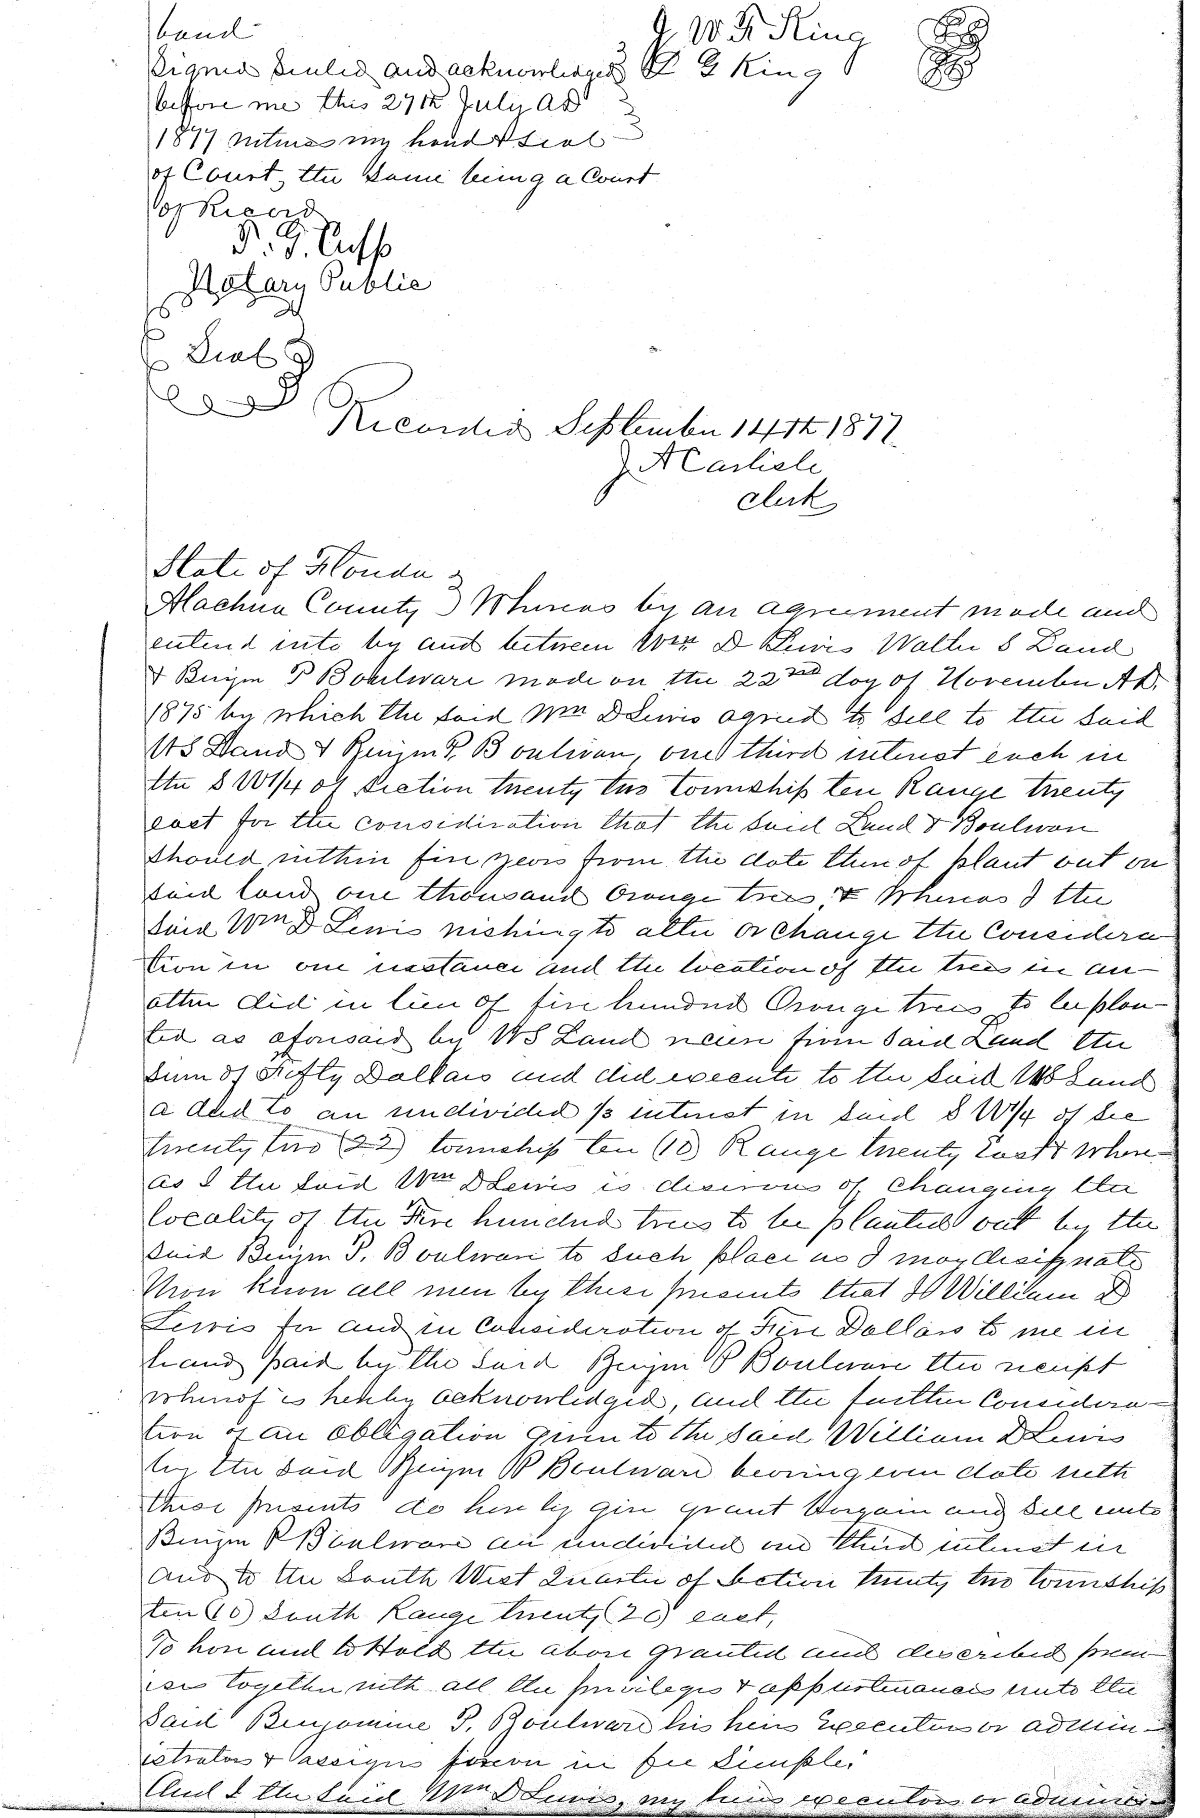 band
Signed Sealed and acknowledged
before me this 27th July AD
1877 witness my hand & seal
of Court, the same being a Court
of Record
Notary Public
Seal
J W F King
G King
Recorded September 14th 1877.
J A Carlisle
Clerk
State of Florida
Alachua County Whereas by an agreement made and
entered into by and between Wm D Lewis Walter S Land
& Benjm P Boulware made on the 22nd day of November A.D.
1875 by which the said Wm D Lewis agreed to sell to the said
WS Land & Benjm P. Boulware, one third interest each in
the S W 1/4 of Section twenty two township ten Range twenty
east for the consideration that the said Land & Boulware
should within five years from the date thereof plant out on
said land one thousand Orange trees, & Whereas I the
said Wm D Lewis wishing to alter or change the Considera
tion in one instance and the location of the trees in an-
other did in lieu of five hundred Orange trees to be plan-
ted as aforesaid by WS Land receive from said Land the
sum of Fifty Dollars and did execute to the said WS Land
a deed to an undivided 1/3 interest in said S W 1/4 of Sec
twenty two (22) township ten (10) Range twenty East & where-
as I the said Wm D Lewis is desirous of changing the
locality of the Five hundred trees to be planted out by the
said Benjm P. Boulware to such place as I may designate
Now know all men by these presents that I William D
Lewis for and in Consideration of Five Dollars to me in
hand paid by the said Benjm P Boulware the receipt
whereof is hereby acknowledged, and the further Considera-
tion of an obligation given to the said William D Lewis
by the said Benjm P Boulware bearing even date with
these presents do hereby give grant bargain and sell unto
Benjm P Boulware an undivided one third interest in
and to the South West Quarter of Section twenty two township
ten (10) South Range twenty (20) east,
To have and to Hold the above granted and described prem-
ises together with all the privileges & appurtenances unto the
said Benjamine P. Boulware his heirs Executors or admin-
istrators & assigns forever in fee simple.
And I the said Wm D Lewis, my heirs executors or adminis-